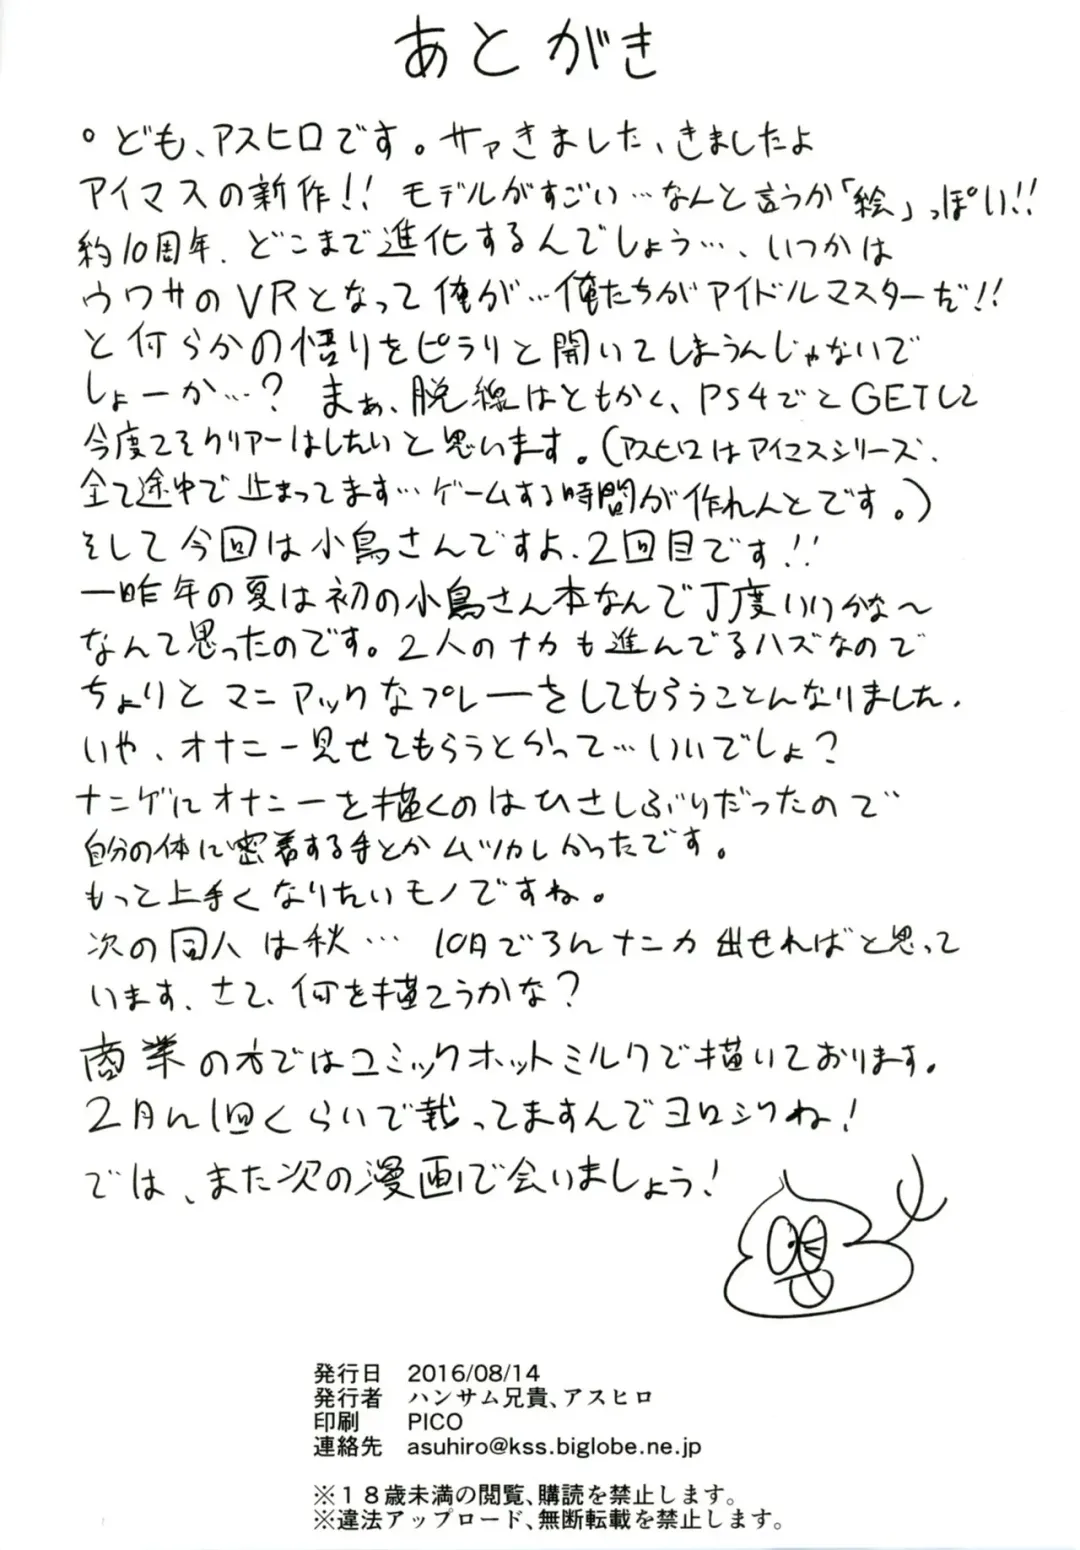 あとがき
。ども、アスヒロです。サァきました、きましたよ
アイマスの新作!! モデルがすごい…なんと言うか「絵」っぽい!!
約10周年、どこまで進化するんでしょう…、いつかは
ウワサのVRとなって俺が…俺たちがアイドルマスターだ!!
と何らかの悟りをピラリと開いてしまうんじゃないで
しょーか…? まぁ、脱線はともかく、PS4ごとGETして
今度こそクリアーはしたいと思います。(アスヒロはアイマスシリーズ、
全て途中で止まってます…ゲームする時間が作れんとです。)
そして今回は小鳥さんですよ、2回目です!!
一昨年の夏は初の小鳥さん本なんで丁度いいかな〜
なんて思ったのです。2人のナカも進んでるハズなので
ちょりとマニアックなプレーをしてもらうことんなりました、
いや、オナニー見せてもらうとかって…いいでしょ?
ナニゲにオナニーを描くのはひさしぶりだったので
自分の体に密着する手とかムツカしかったです。
もっと上手くなりたいモノですね。
次の同人は秋… 10月ごろんナニカ出せればと思って
います、さて、何を描こうかな?
商業の方ではコミックホットミルクで描いております。
2月ん1回くらいで載ってますんでヨロシクね!
では、また次の漫画で会いましょう!
発行日 2016/08/14
発行者 ハンサム兄貴、アスヒロ
印刷 PICO
連絡先 asuhiro@kss.biglobe.ne.jp
※１８歳未満の閲覧、購読を禁止します。
※違法アップロード、無断転載を禁止します。